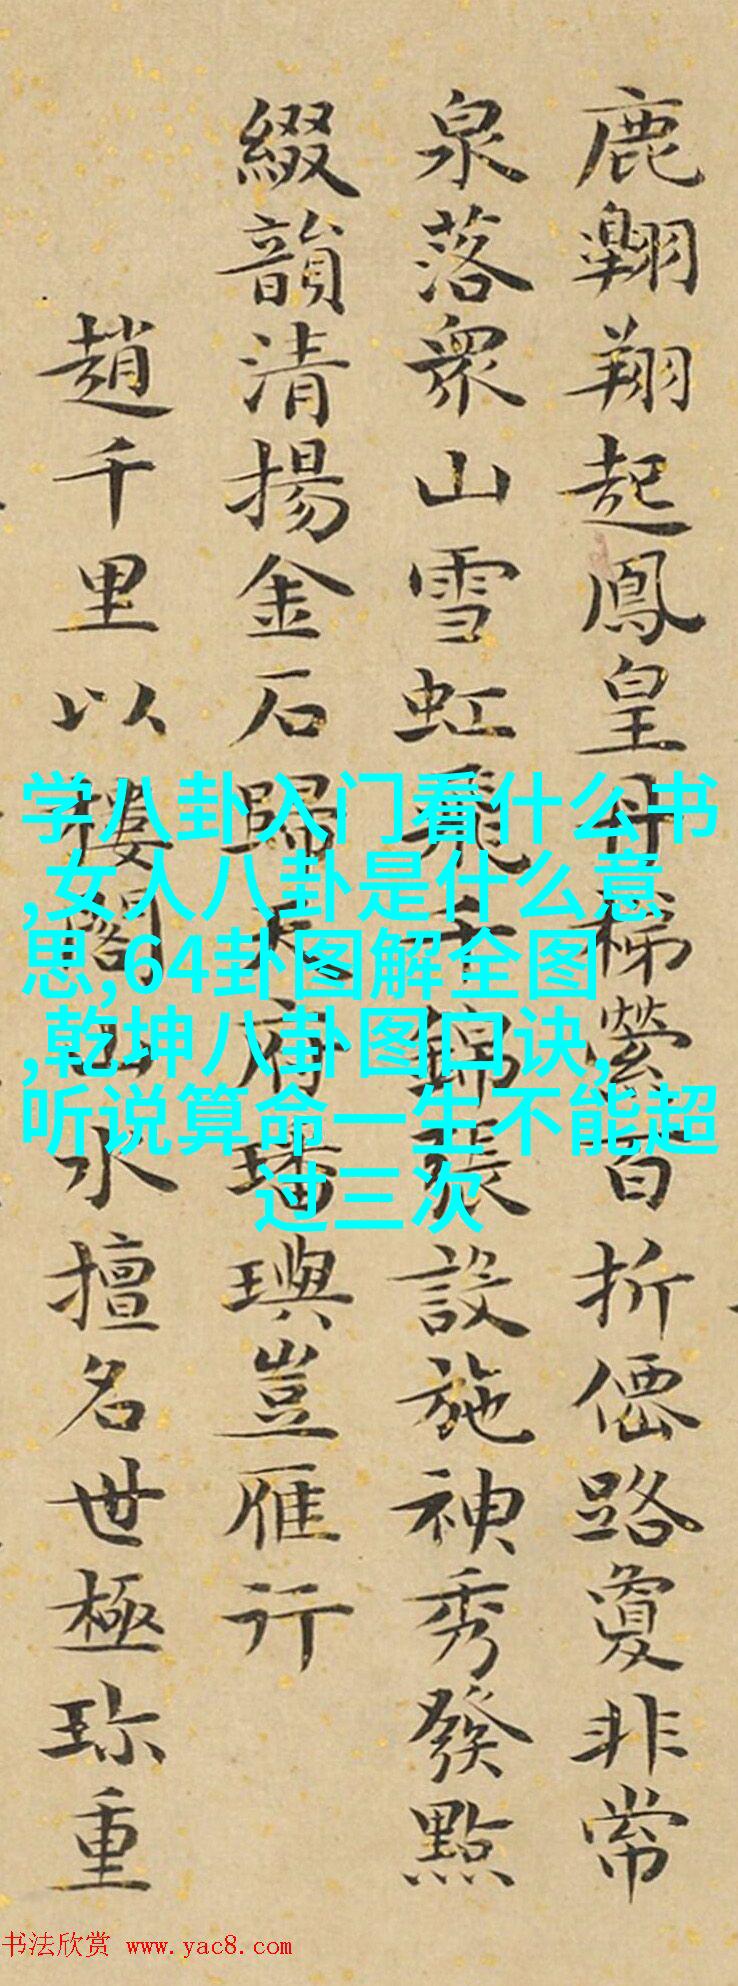 鹿翱翔起鳳皇丹梯縈百折僊路敻非常
泉落衆山雪虹乘千錦張設施神秀發點
綴韻清揚金石歸天府璠璵豈雁行
趙千里以樓閣山水擅名世極珎重
学八卦入门看什么书
,女人八卦是什么意
思,64卦图解全图
,乾坤八卦图口诀,
听说算命一生不能超
过三次
书法欣赏 www.yac8.com